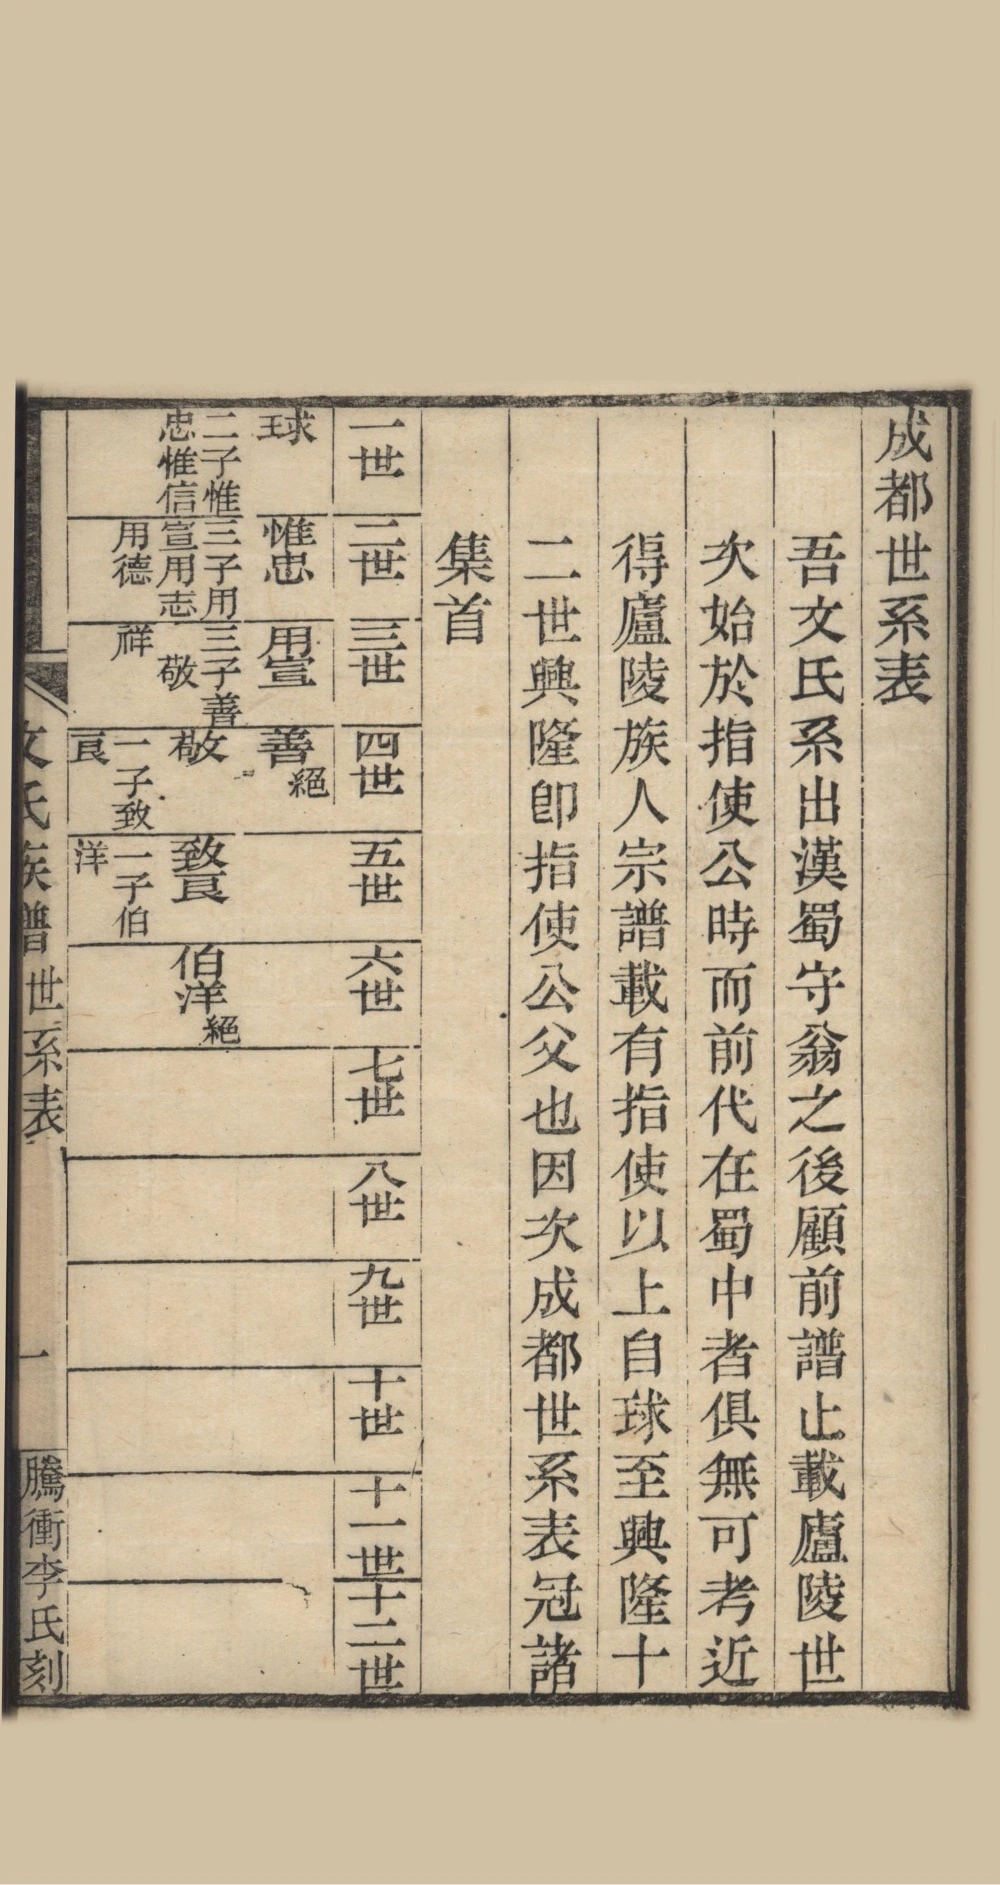 成都世系表
吾文氏系出漢蜀守翁之後顧前譜止載廬陵世
次始於指使公時而前代在蜀中者俱無可考近
得廬陵族人宗譜載有指使以上自球至興隆十
二世興隆卽指使公父也因次成都世系表冠諸
集首
一世
二世
三世
四世
五世
六世
七世
八世
九世
十世
十一世
十二世
球
二子惟
忠惟信
惟忠
三子用
宣用志
用德
用宣
三子善
敬
祥
善絕
敬
一子致
良
致良
一子伯
洋
伯洋絕
文氏族譜世系表
一
騰衝李氏刻